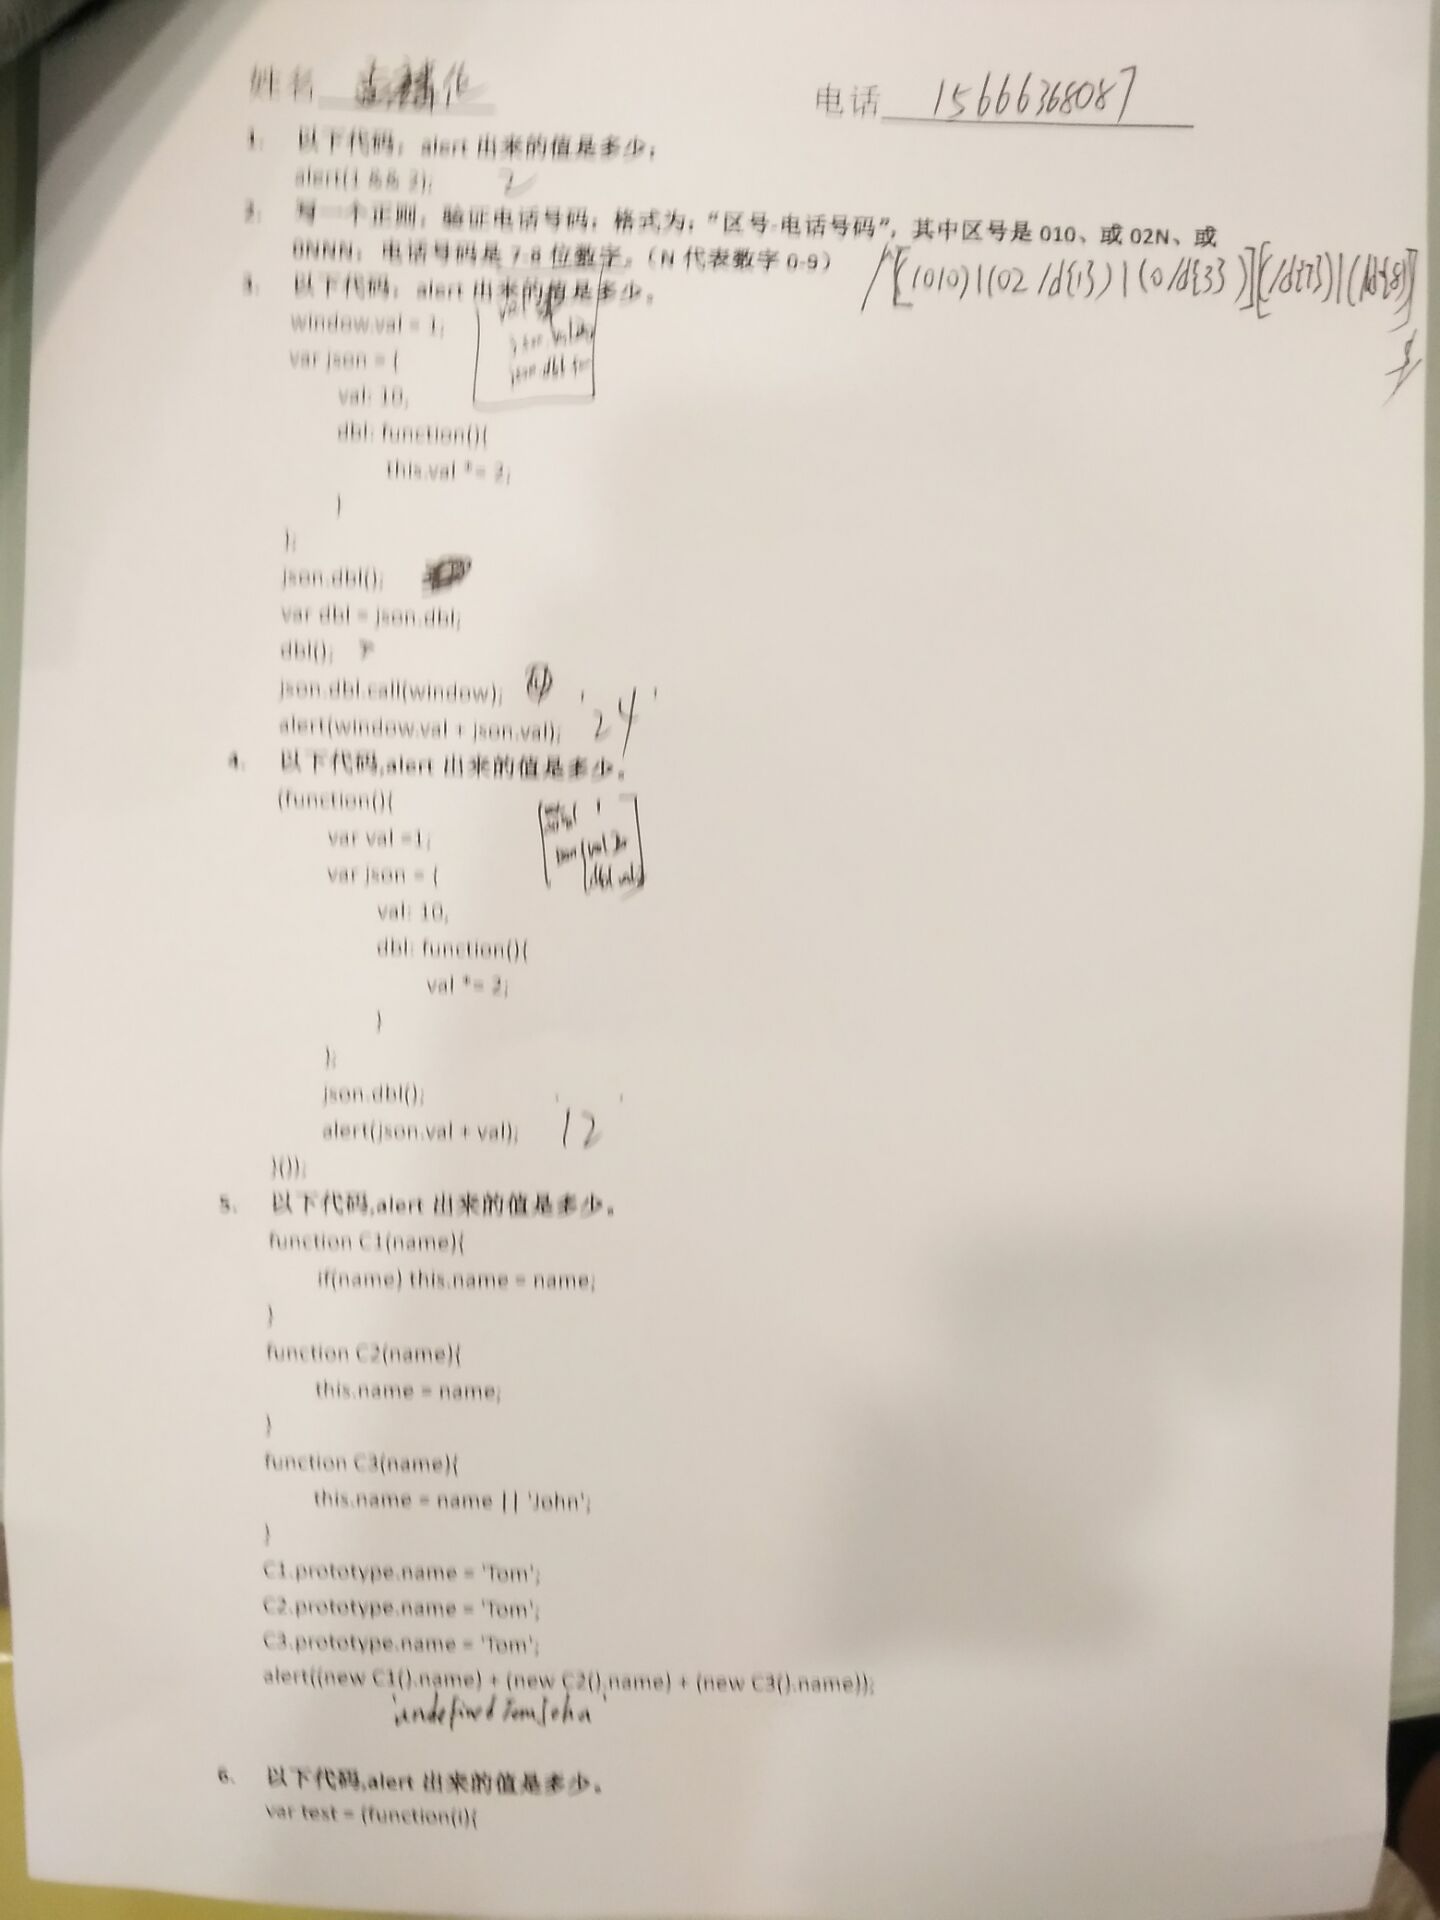 姓名 电话 15666368087
1. 以下代码，alert 出来的值是多少，
alert(1 && 2); 2
2. 写一个正则，验证电话号码，格式为，“区号-电话号码”，其中区号是 010、或 02N、或
0NNN，电话号码是 7-8 位数字。（N 代表数字 0-9）
/[(010)|(02/d{1})|(0/d{3})][(/d{7})|(/d{8})]
3. 以下代码，alert 出来的值是多少。
window.val = 1;
var json = {
val: 10,
dbl: function(){
this.val *= 2;
}
};
json.dbl();
var dbl = json.dbl;
dbl();
json.dbl.call(window);
alert(window.val + json.val); '24'
4. 以下代码,alert 出来的值是多少。
(function(){
var val =1;
var json = {
val: 10,
dbl: function(){
val *= 2;
}
};
json.dbl();
alert(json.val + val); '12'
}());
5. 以下代码,alert 出来的值是多少。
function C1(name){
if(name) this.name = name;
}
function C2(name){
this.name = name;
}
function C3(name){
this.name = name || 'John';
}
C1.prototype.name = 'Tom';
C2.prototype.name = 'Tom';
C3.prototype.name = 'Tom';
alert((new C1().name) + (new C2().name) + (new C3().name));
'undefinedTomJohn'
6. 以下代码,alert 出来的值是多少。
var test = (function(i){